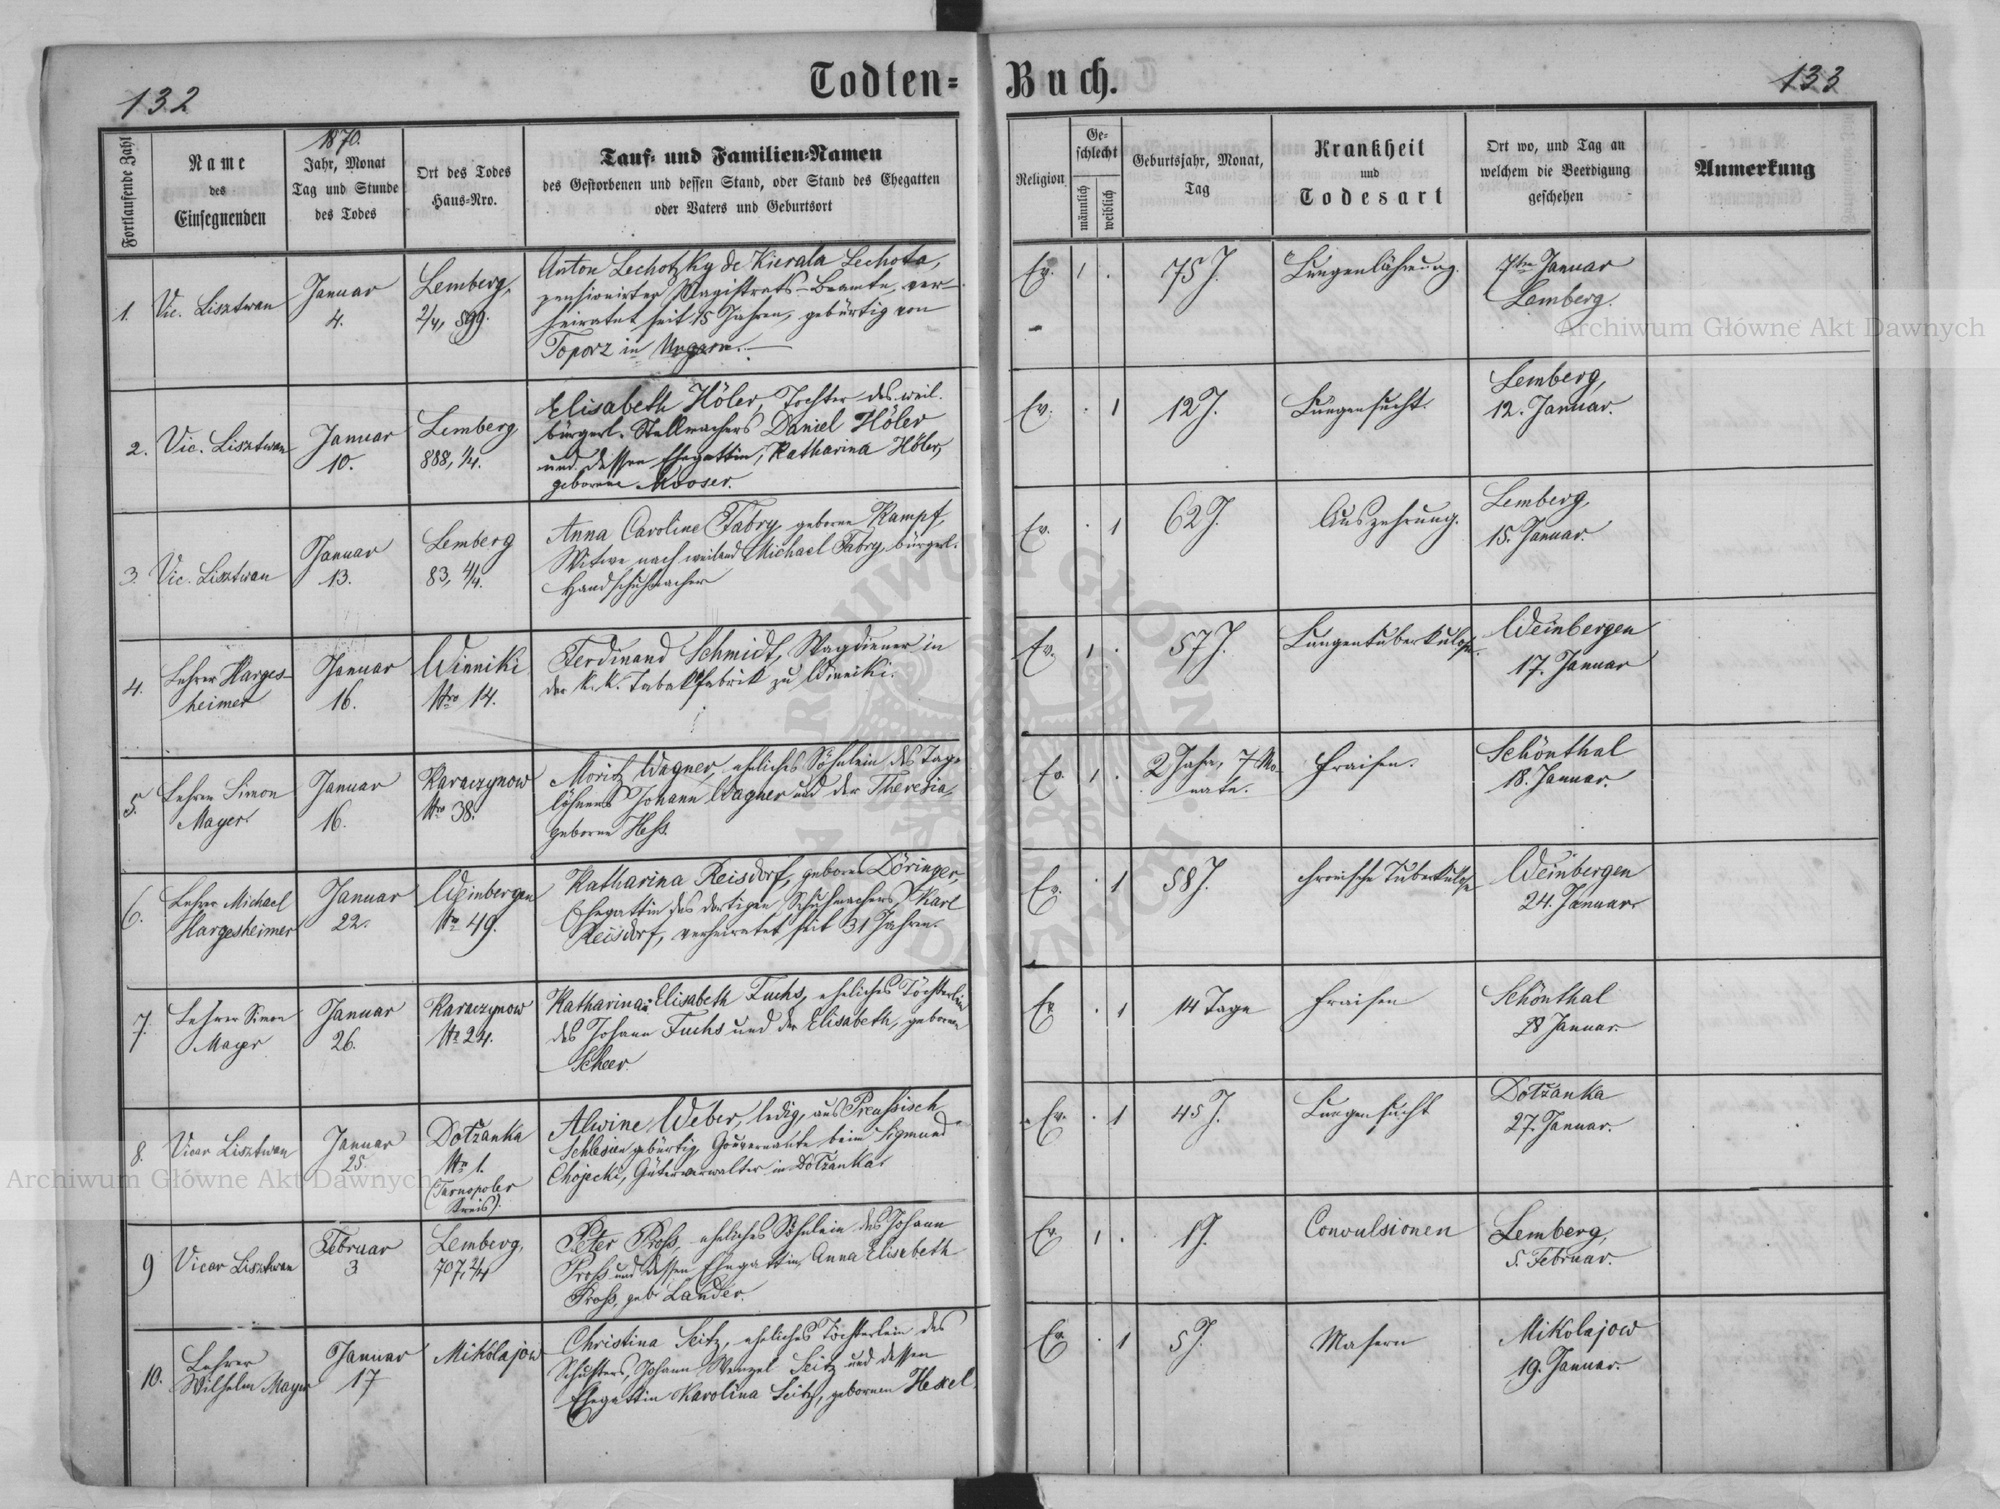 132
Todten=Buch.
133
Fortlaufende Zahl
Name
des
Einsegnenden
1870.
Jahr, Monat
Tag und Stunde
des Todes
Ort des Todes
Haus-Nro.
Tauf- und Familien-Namen
des Gestorbenen und dessen Stand, oder Stand des Ehegatten
oder Vaters und Geburtsort
Religion
Ge-
schlecht
männlich
weiblich
Geburtsjahr, Monat,
Tag
Krankheit
und
Todesart
Ort wo, und Tag an
welchem die Beerdigung
geschehen
Anmerkung
1.
Vic. Lisztwan
Januar
4.
Lemberg,
2/4, 599.
Anton Lechotzky de Kierala Lechota,
pensionirter Magistrats-Beamte, ver-
heiratet seit 15 Jahren, gebürtig von
Toporz in Ungarn.
Ev.
1
.
75 J.
Lungenlähmung.
7ten Januar
Lemberg.
2.
Vic. Lisztwan
Januar
10.
Lemberg
888, 1/4.
Elisabeth Höler, Tochter des weil.
bürgerl. Stellmachers Daniel Höler
und dessen Ehegattin, Katharina Höler,
geborene Mooser.
Ev.
.
1
12 J.
Lungensucht.
Lemberg,
12. Januar.
3.
Vic. Lisztwan
Januar
13.
Lemberg
83, 4/4.
Anna Caroline Fabry, geborne Kampf,
Witwe nach weiland Michael Fabry, bürgerl.
Handschuhmacher
Ev.
.
1
62 J.
Auszehrung.
Lemberg,
15. Januar.
4.
Lehrer Harges-
heimer
Januar
16.
Winniki
Nro 14.
Ferdinand Schmidt, Wagdiener in
der k. k. Tabakfabrik zu Winniki.
Ev.
1
.
57 J.
Lungentuberkulose.
Weinbergen
17. Januar
5.
Lehrer Simon
Mayer
Januar
16.
Karaczynow
Nro 38.
Moritz Wagner, eheliches Söhnlein des Tag-
löhners Johann Wagner und der Theresia,
geborne Hess.
Ev.
1
.
2 Jahr, 7 Mo-
nate.
Fraisen.
Schönthal
18. Januar.
6.
Lehrer Michael
Hargesheimer
Januar
22.
Weinbergen
Nro 49.
Katharina Reisdorf, geborne Döringer,
Ehegattin des dortigen Schuhmachers Karl
Reisdorf, verheiratet seit 31 Jahren.
Ev.
.
1
58 J.
chronische Tuberkulose
Weinbergen
24. Januar
7.
Lehrer Simon
Mayer
Januar
26.
Karaczynow
Nro 24.
Katharina Elisabeth Fuchs, eheliches Töchterlein
des Johann Fuchs und der Elisabeth, geborene
Scheer.
Ev.
.
1
14 Tage
Fraisen
Schönthal
28 Januar.
8.
Vicar Lisztwan
Januar
25.
Dołżanka
Nro 1.
(Tarnopoler
Kreis).
Alwine Weber, ledig, aus Preussisch
Schlesien gebürtig, Gouvernante beim Sigmund
Chojecki, Güterverwalter in Dołżanka.
Ev.
.
1
45 J.
Lungensucht
Dołżanka
27. Januar.
9
Vicar Lisztwan
Februar
3
Lemberg,
707, 2/4
Peter Pross, eheliches Söhnlein des Johann
Pross und dessen Ehegattin Anna Elisabeth
Pross, geb. Lander.
Ev.
1
.
1 J.
Convulsionen
Lemberg,
5. Februar.
10.
Lehrer
Wilhelm Mayer
Januar
17
Mikolajow
Christina Seitz, eheliches Töchterlein des
Schusters, Johann Wenzel Seitz und dessen
Ehegattin Karolina Seitz, geborenen Hexel.
Ev.
.
1
5 J.
Masern
Mikolajow
19. Januar.
Archiwum Główne Akt Dawnych
Archiwum Główne Akt Dawnych
ARCHIWUM GŁÓWNE AKT DAWNYCH